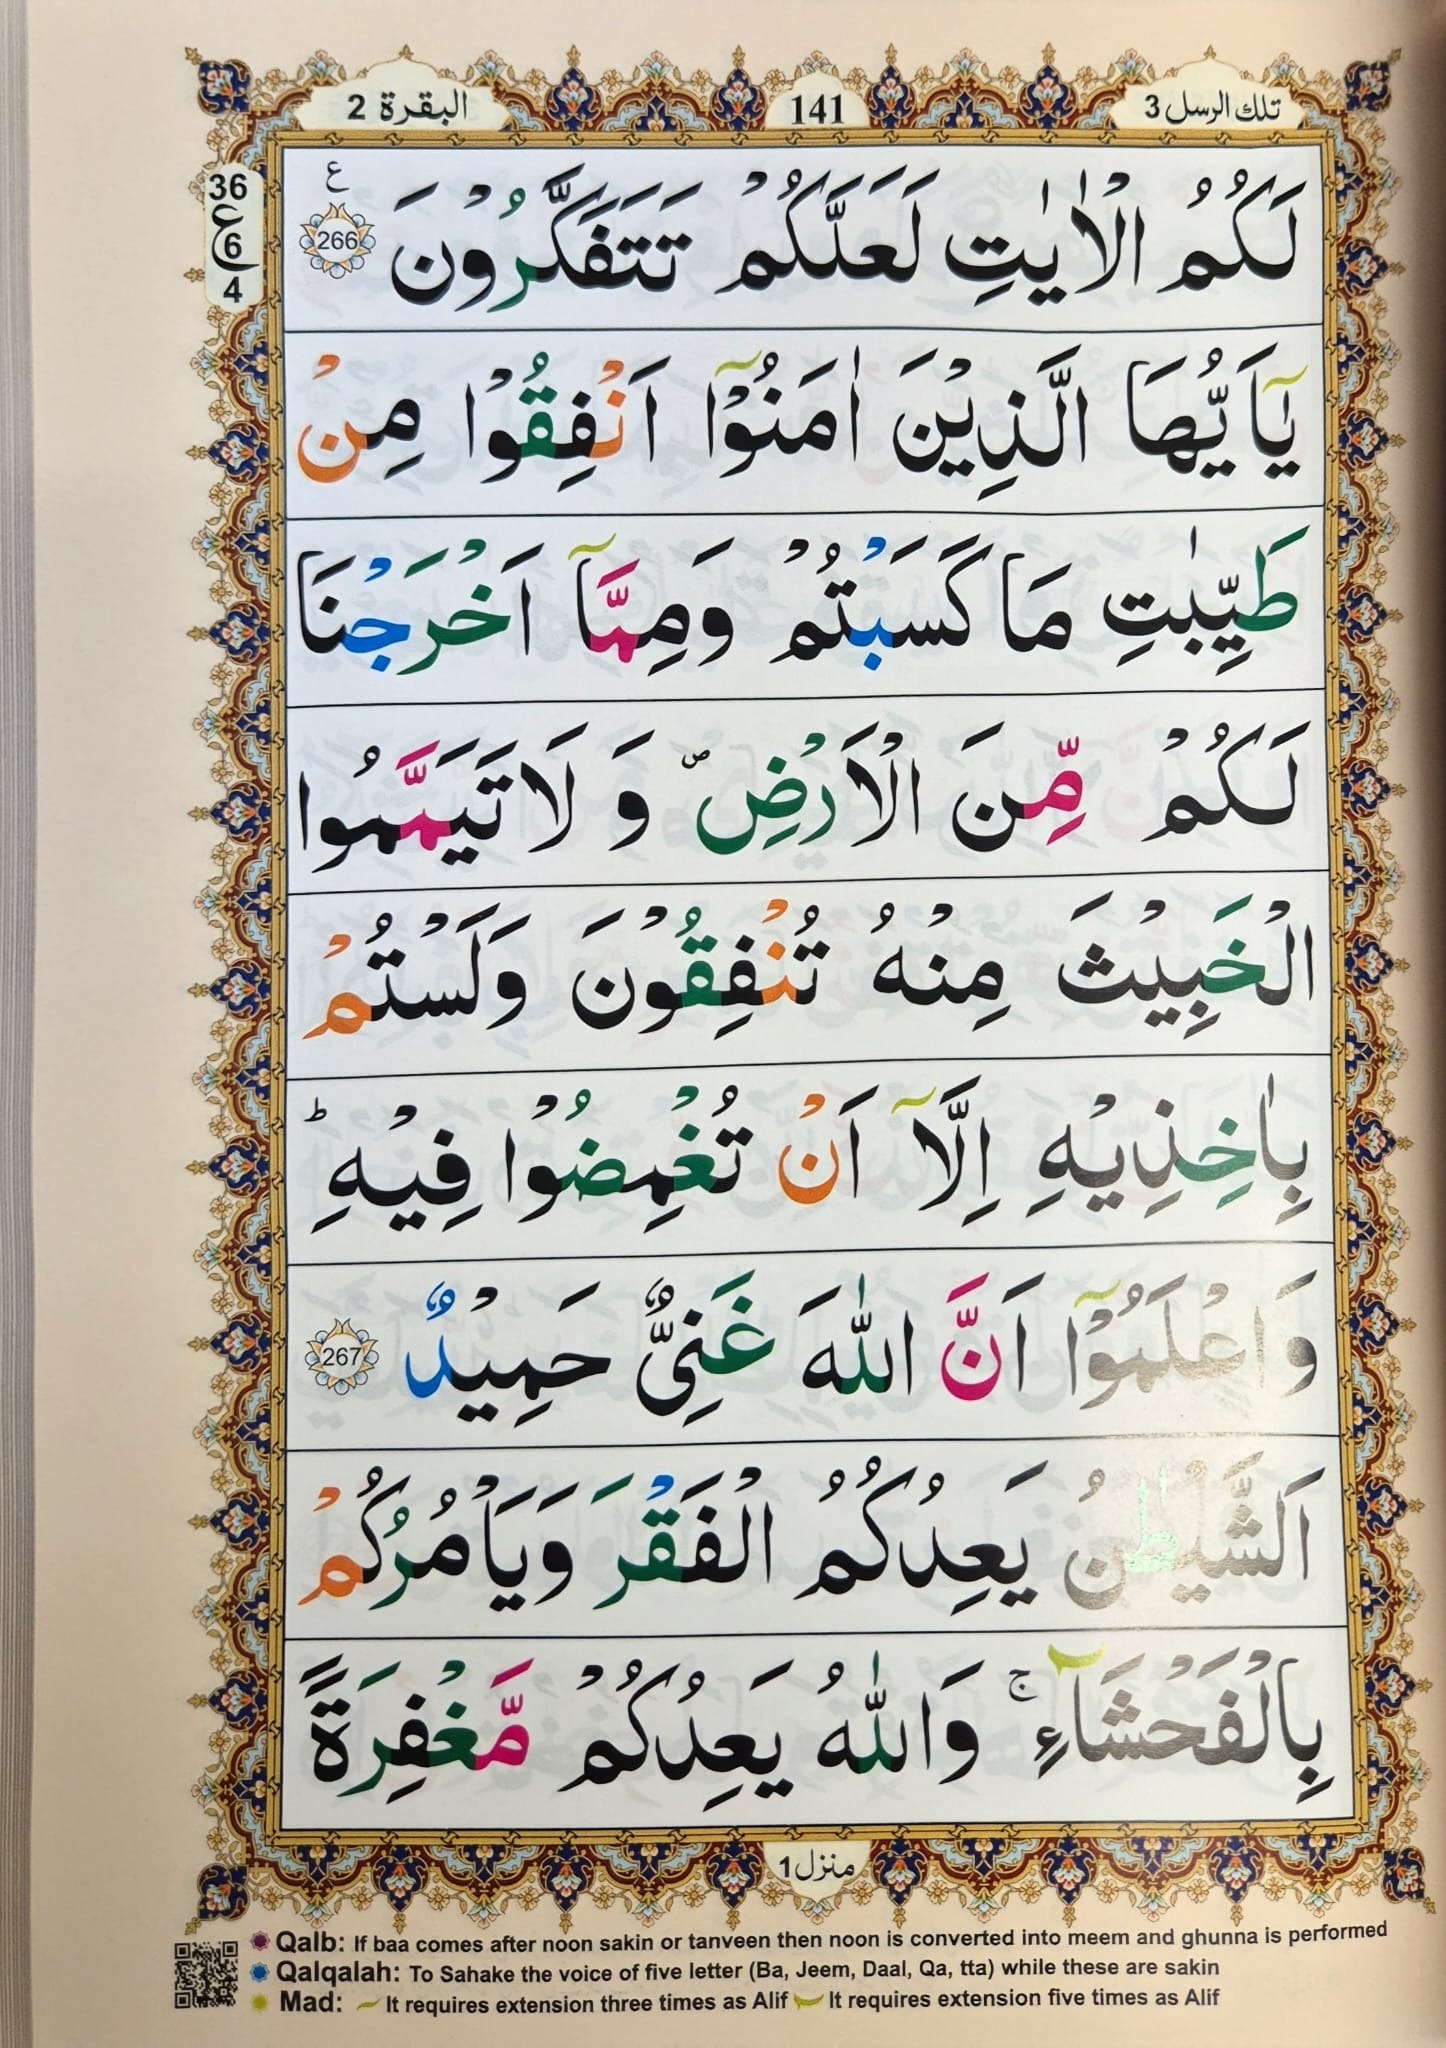 البقرة 2
141
تلك الرسل 3
36
ع
6
4
لَكُمُ الْاٰيٰتِ لَعَلَّكُمْ تَتَفَكَّرُوْنَ ع 266
يٰۤاَيُّهَا الَّذِيْنَ اٰمَنُوْۤا اَنْفِقُوْا مِنْ
طَيِّبٰتِ مَا كَسَبْتُمْ وَمِمَّاۤ اَخْرَجْنَا
لَكُمْ مِّنَ الْاَرْضِ ۪ وَ لَا تَيَمَّمُوا
الْخَبِيْثَ مِنْهُ تُنْفِقُوْنَ وَلَسْتُمْ
بِاٰخِذِيْهِ اِلَّاۤ اَنْ تُغْمِضُوْا فِيْهِ ؕ
وَاعْلَمُوْۤا اَنَّ اللّٰهَ غَنِيٌّ حَمِيْدٌ 267
اَلشَّيْطٰنُ يَعِدُكُمُ الْفَقْرَ وَيَاْمُرُكُمْ
بِالْفَحْشَآءِ ۚ وَاللّٰهُ يَعِدُكُمْ مَّغْفِرَةً
منزل 1
Qalb: If baa comes after noon sakin or tanveen then noon is converted into meem and ghunna is performed
Qalqalah: To Sahake the voice of five letter (Ba, Jeem, Daal, Qa, tta) while these are sakin
Mad: It requires extension three times as Alif It requires extension five times as Alif